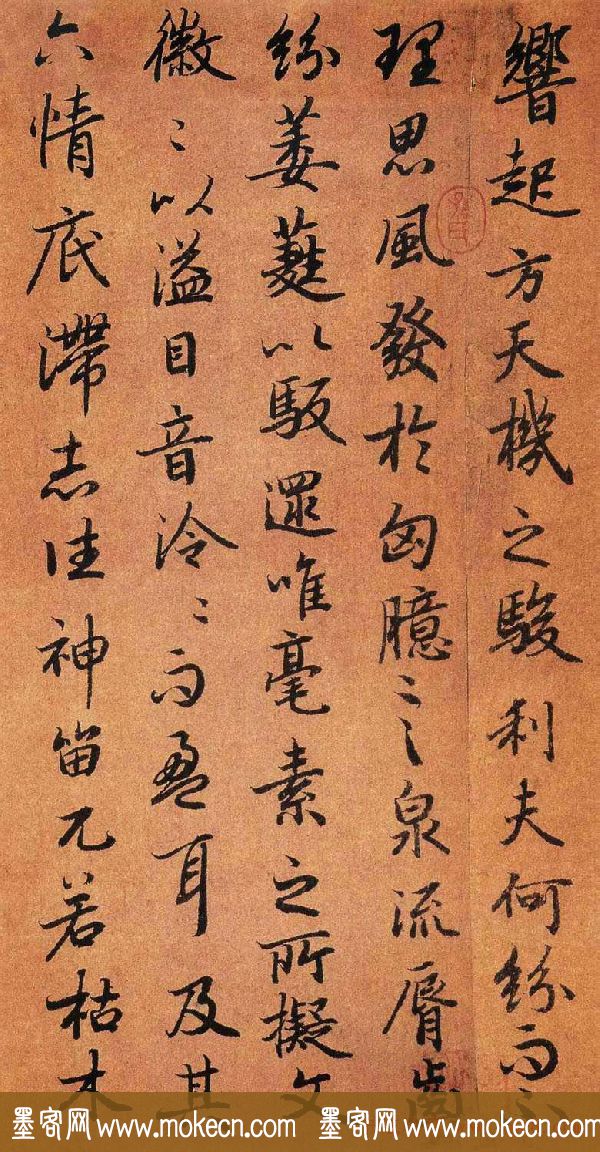 響起方天機之駿利夫何紛而不
理思風發於匈臆言泉流脣齒
紛萎蕤以馺遝唯毫素之所擬文
徽〻以溢目音泠〻而盈耳及其
六情底滯志往神留兀若枯木
墨客网 www.mokecn.com 墨客网 www.mokecn.com